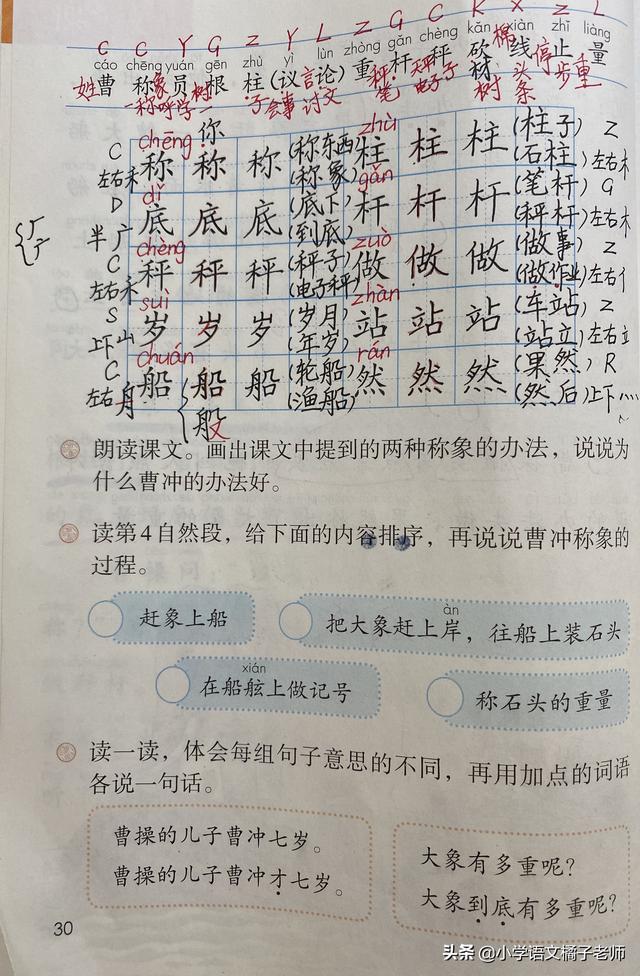 C C Y G Z Y L Z G C K X Z L
cáo chēng yuán gēn zhù yì lùn zhòng gǎn chèng kǎn xiàn zhǐ liàng
姓曹 称 员 根 柱 (议 论) 重 杆 秤 砍 线 止 量
chēng 你 zhù
C 称 称 称 (称东西) 柱 柱 柱 (柱子) Z
左右 禾 (称象) (石柱) 左右木
dǐ gǎn
D 底 底 底 (底下) 杆 杆 杆 (笔杆) G
半 广 (到底) (秤杆) 左右木
chèng zuò
C 秤 秤 秤 (秤子) 做 做 做 (做事) Z
左右禾 (电子秤) (做作业) 左右亻
suì zhàn
S 岁 岁 岁 (岁月) 站 站 站 (车站) Z
上下山 (年岁) (站立) 左右立
chuán rán
C 船 船 船 (轮船) 然 然 然 (果然) R
左右舟 船 (渔船) (然后) 上下灬
朗读课文。画出课文中提到的两种称象的办法，说说为
什么曹冲的办法好。
读第4自然段，给下面的内容排序，再说说曹冲称象的
过程。
赶象上船
àn
把大象赶上岸，往船上装石头
xián
在船舷上做记号
称石头的重量
读一读，体会每组句子意思的不同，再用加点的词语
各说一句话。
曹操的儿子曹冲七岁。
曹操的儿子曹冲才七岁。
大象有多重呢？
大象到底有多重呢？
30
头条 @小学语文橘子老师